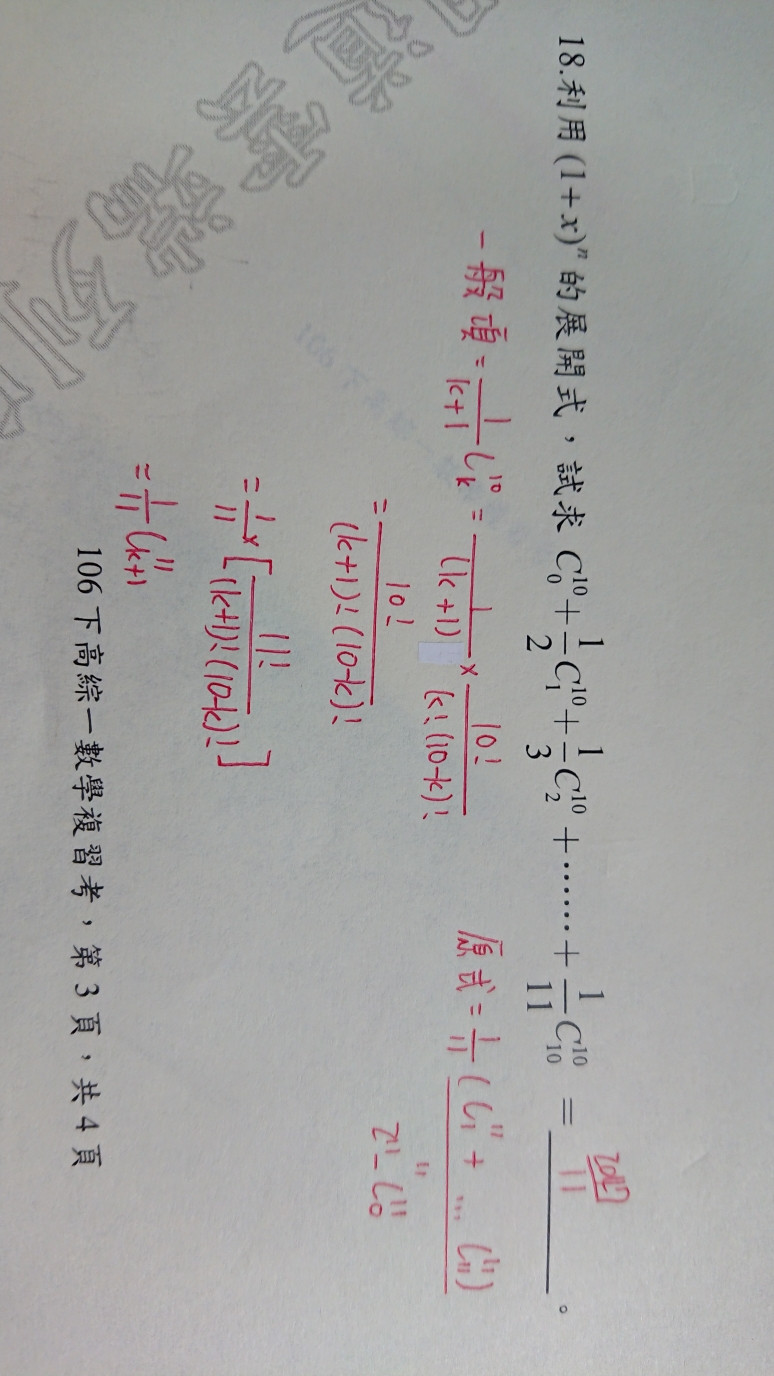 18.利用 (1+x)ⁿ 的展開式，試求 C₀¹⁰ + 1/2 C₁¹⁰ + 1/3 C₂¹⁰ + …… + 1/11 C₁₀¹⁰ = ______。
2047/11
一般項 = 1/(k+1) Cₖ¹⁰ = 1/(k+1) × 10!/(k!(10-k)!)
= 10!/((k+1)!(10-k)!)
= 1/11 × [11!/((k+1)!(10-k)!)]
= 1/11 Cₖ₊₁¹¹
原式 = 1/11 (C₁¹¹ + … C₁₁¹¹)
"
2¹¹ - C₀¹¹
106 下高綜一數學複習考，第 3 頁，共 4 頁